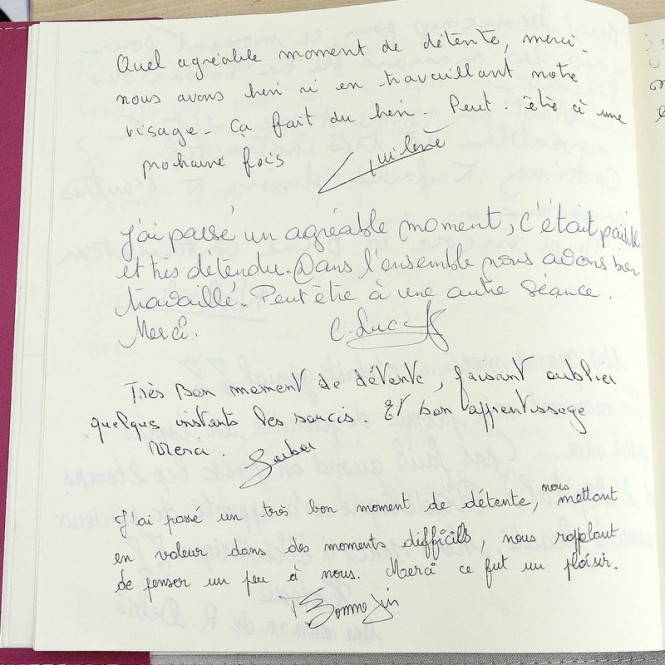 Quel agréable moment de détente, merci.
nous avons bien ri en travaillant notre
visage. Ça fait du bien. Peut-être à une
prochaine fois
J'ai passé un agréable moment, c'était paisible
et très détendu. Dans l'ensemble nous avons bien
travaillé. Peut être à une autre séance.
Merci. C. Luc
Très bon moment de détente, faisant oublier
quelques instants les soucis. Et bon apprentissage
Merci.
J'ai passé un très bon moment de détente, nous mettant
en valeur dans des moments difficils, nous rappelant
de penser un peu à nous. Merci ce fut un plaisir.